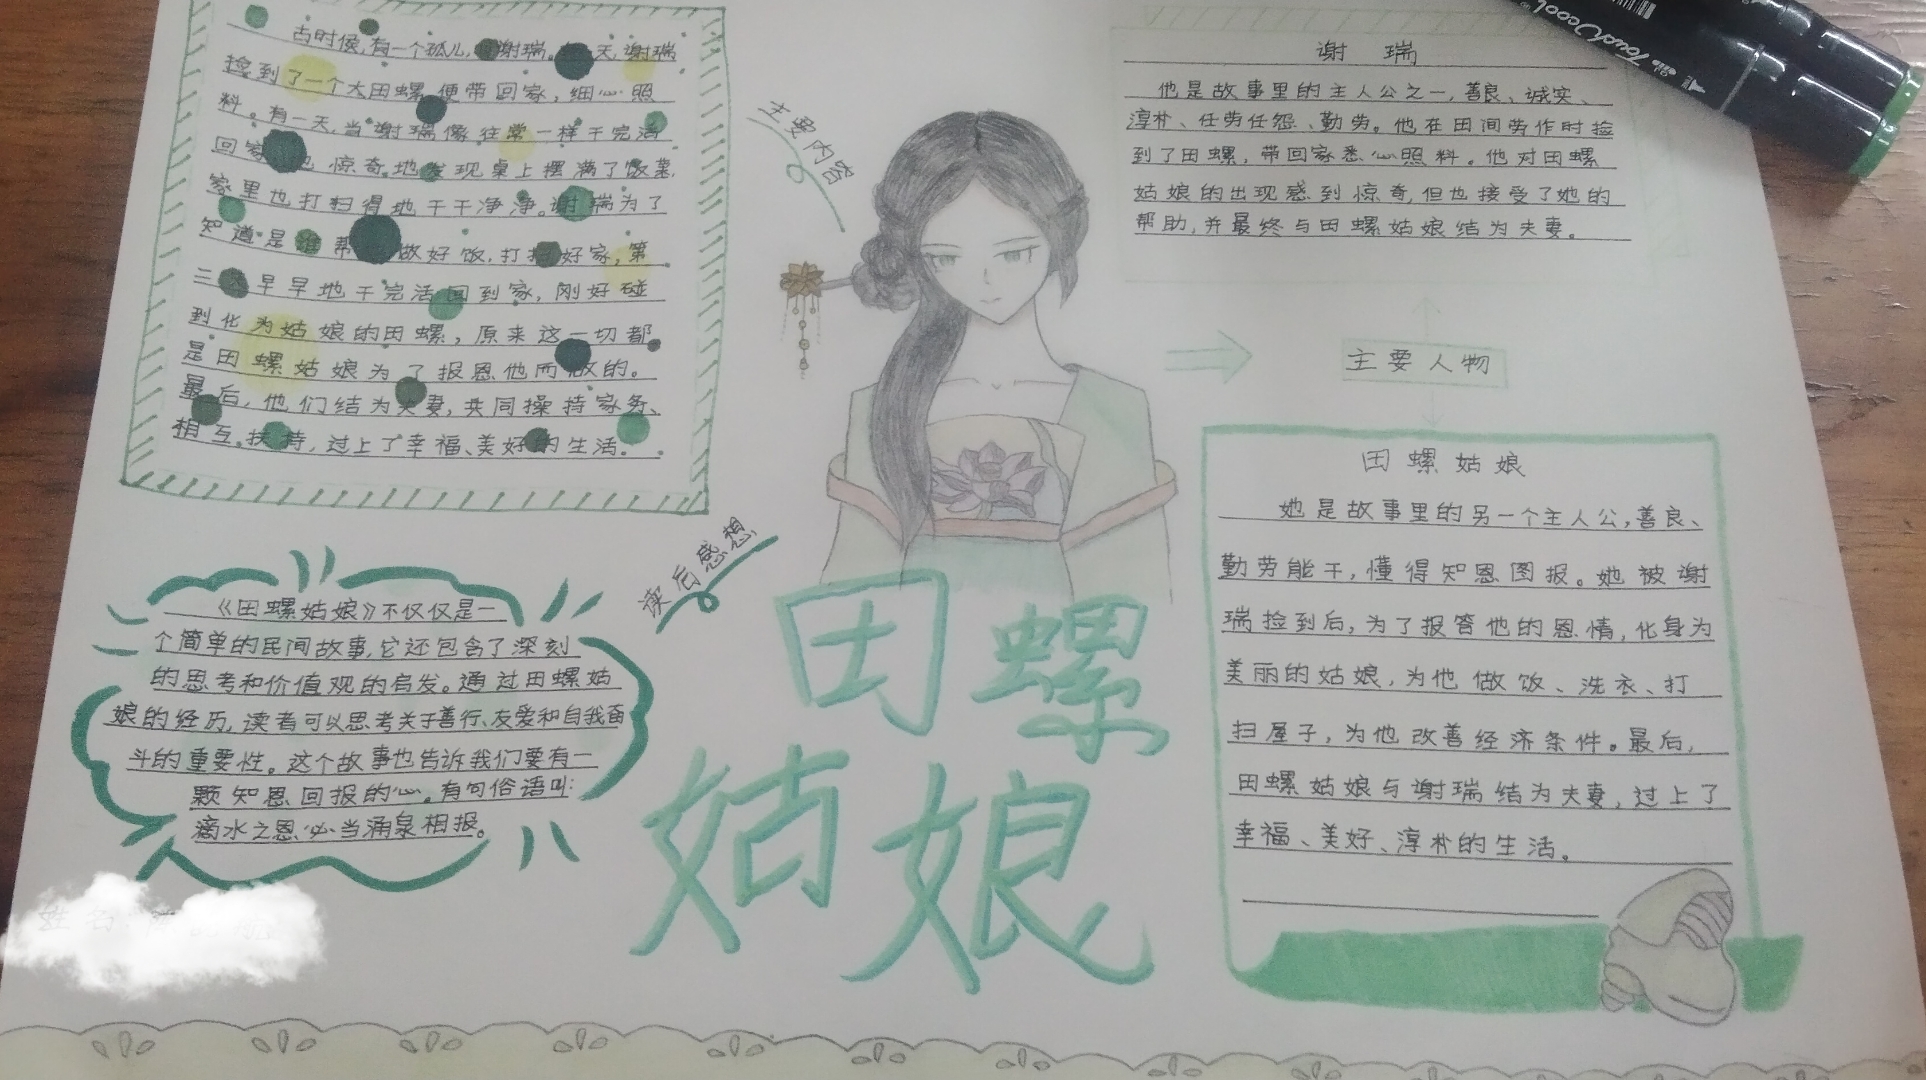 古时候,有一个孤儿,谢瑞。天,谢瑞
捡到了一个大田螺,便带回家,细心照
料。有一天,当谢瑞像往常一样干完活
回家 惊奇地发现桌上摆满了饭菜,
家里也打扫得地干干净净。谢瑞为了
知道是谁帮 做好饭,打扫好家,第
二 早早地干完活回到家,刚好碰
到化为姑娘的田螺,原来这一切都
是田螺姑娘为了报恩他而做的。
最后,他们结为夫妻,共同操持家务、
相互扶持,过上了幸福、美好的生活。
主要内容
谢瑞
他是故事里的主人公之一,善良、诚实、
淳朴、任劳任怨、勤劳。他在田间劳作时捡
到了田螺,带回家悉心照料。他对田螺
姑娘的出现感到惊奇,但也接受了她的
帮助,并最终与田螺姑娘结为夫妻。
主要人物
田螺姑娘
她是故事里的另一个主人公,善良、
勤劳能干,懂得知恩图报。她被谢
瑞捡到后,为了报答他的恩情,化身为
美丽的姑娘,为他做饭、洗衣、打
扫屋子,为他改善经济条件。最后,
田螺姑娘与谢瑞结为夫妻,过上了
幸福、美好、淳朴的生活。
读后感想
《田螺姑娘》不仅仅是一
个简单的民间故事,它还包含了深刻
的思考和价值观的启发。通过田螺姑
娘的经历,读者可以思考关于善行、友爱和自我奋
斗的重要性。这个故事也告诉我们要有一
颗知恩回报的心。有句俗语叫:
滴水之恩必当涌泉相报。
田螺
姑娘
姓名:
Touch cool